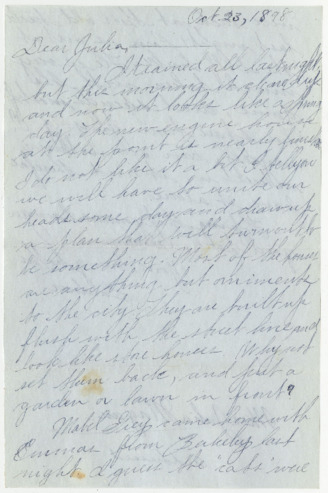 Oct. 23, 1898
Dear Julia,
It rained all last night
but this morning it
and now it looks like a
day. The new engine house
at the front is nearly
I do not like it a bit. I tell you
we will have to unite our
heads some day and draw up
a plan that will turn out to
be something. Most of the houses
are anything but
to the city. They are built up
flush with the street line and
look like store houses. Why not
set them back, and put a
garden a lawn in front?
Mabel came home with
Emma from last
night. I guess the "cats" were